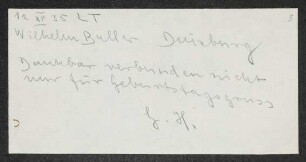 12 XI 35 LT 3
Wilhelm Buller Duisburg
Dankbar verbunden nicht
nur für Geburtstagsgruss
G. H.